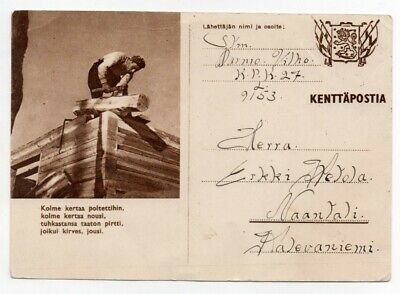 Lähettäjän nimi ja osoite:
K.P.K 27.
9153
KENTTÄPOSTIA
Herra.
Erkki Hetola
Naantali.
Kolme kertaa poltettihin,
kolme kertaa nousi,
tuhkastansa taaton pirtti,
joikui kirves, jousi.